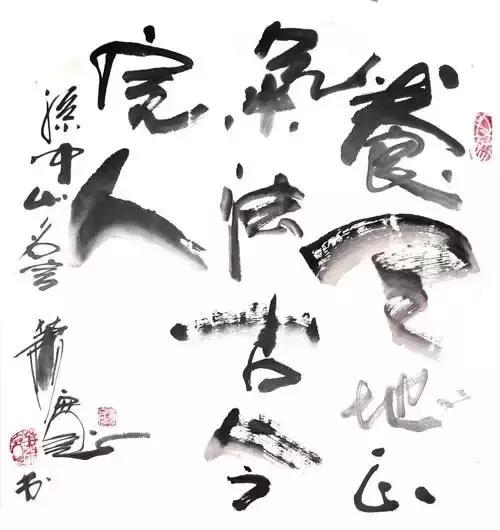 養天地正
氣法古今
完人
孫中山名言 书